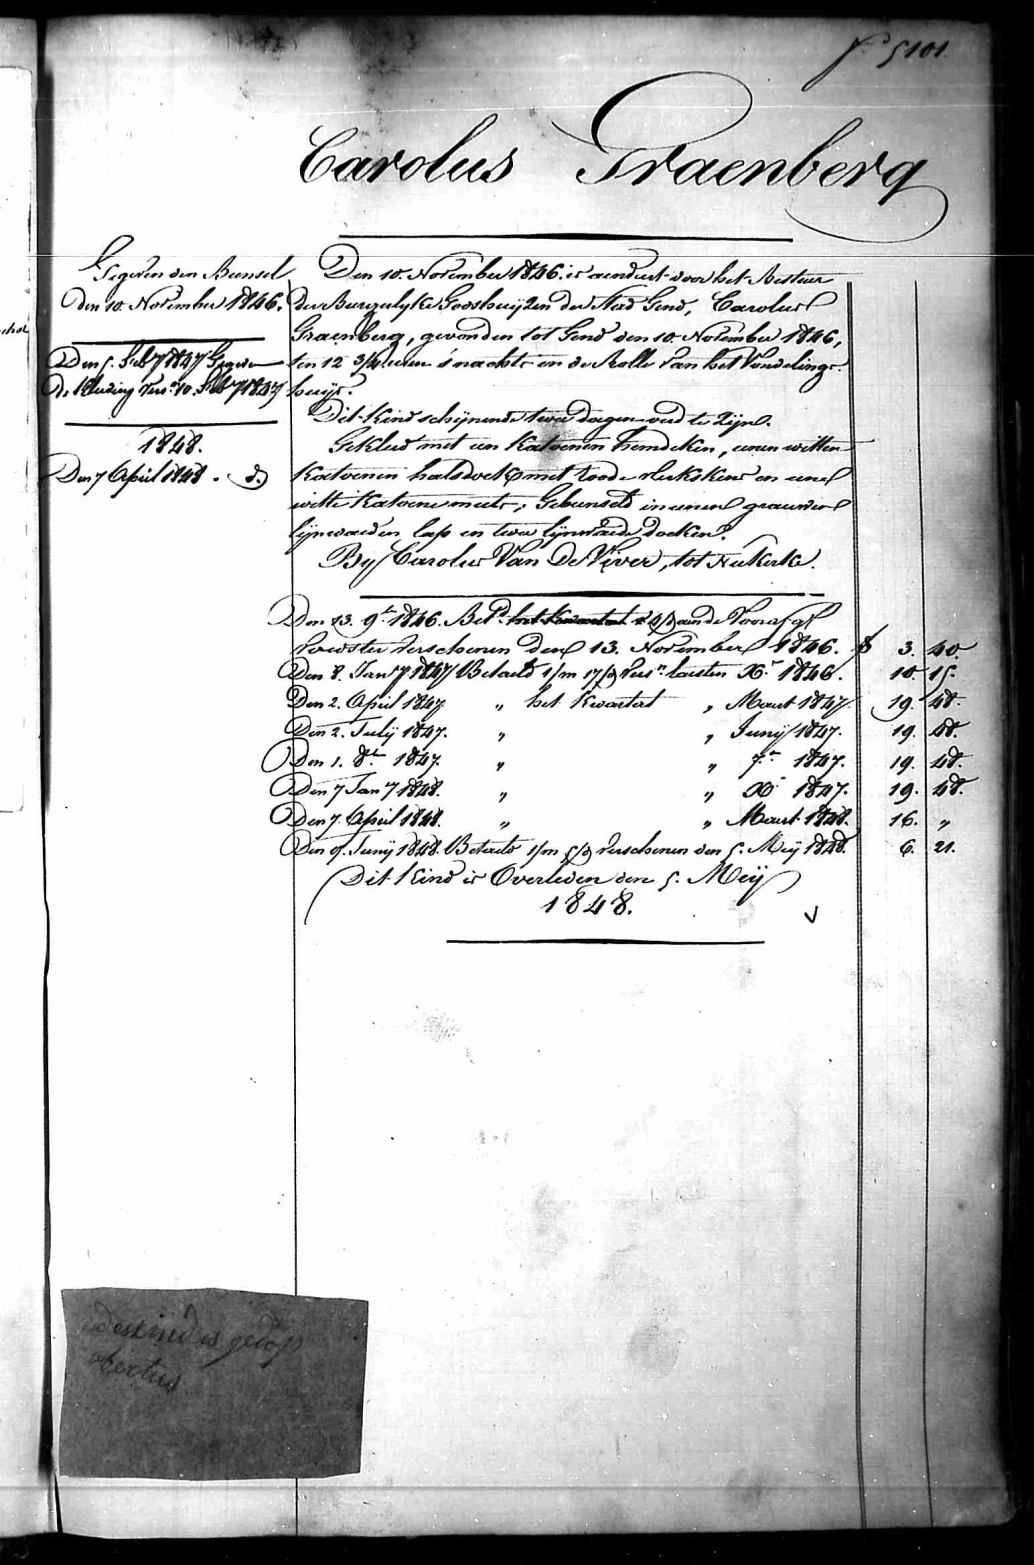 f° 5101.
Carolus Graenberg
Gegeven den Bunsel
den 10. November 1846.
Den 5. Feby 1847 Gegeven
de Kleeding vers. 10. Feby 1847
1848.
Den 7 April 1848. d°
Den 10. November 1846. is aenduert door het Bestuer
der Burgerlyke Godshuijzen der Stad Gend, Carolus
Graenberg, gevonden tot Gend den 10. November 1846,
ten 12 3/4 uren s'nachts in de Rolle van het Vondelings-
huijs.
Dit Kind schijnende twee dagen oud te Zijn.
Gekleed met een Katoenen Hemdeken, eenen witten
Katoenen halsdoek met ronde vlekskens en eene
witte Katoene muts, Gebunseld in eenen grauwen
lijnwaeden lap en twee lijnwaede doeken.
By Carolus Van De Viver, tot Nukerke.
Den 13. 9br 1846. Betd het Kwartael aen de
verschenen den 13. November 1846. f 3. 40
Den 8. Jany 1847 Betaeld 1/m 17/d vers. laesten Xr 1846. 10. 15.
Den 2. April 1847. " het Kwartael " Maert 1847. 19. 48.
Den 2. Julij 1847. " " Junij 1847. 19. 48.
Den 1. 8br 1847. " " 7br 1847. 19. 48.
Den 7 Jany 1848. " " Xr 1847. 19. 48.
Den 7. April 1848. " " Maert 1848. 16. "
Den 9. Junij 1848. Betaeld 1/m 5/d verschenen den 5. Meij 1848. 6. 21.
Dit Kind is Overleden den 5. Meij
1848.
kind is gedoopt